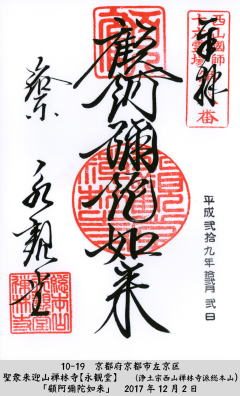 奉拝
西山國師
十六霊場
番
顧阿彌陀如来
京
永観堂
平成弐拾九年拾弐月弐日
10-19 京都府京都市左京区
聖衆来迎山禅林寺【永観堂】 (浄土宗西山禅林寺派総本山)
「顧阿彌陀如来」 2017年12月2日